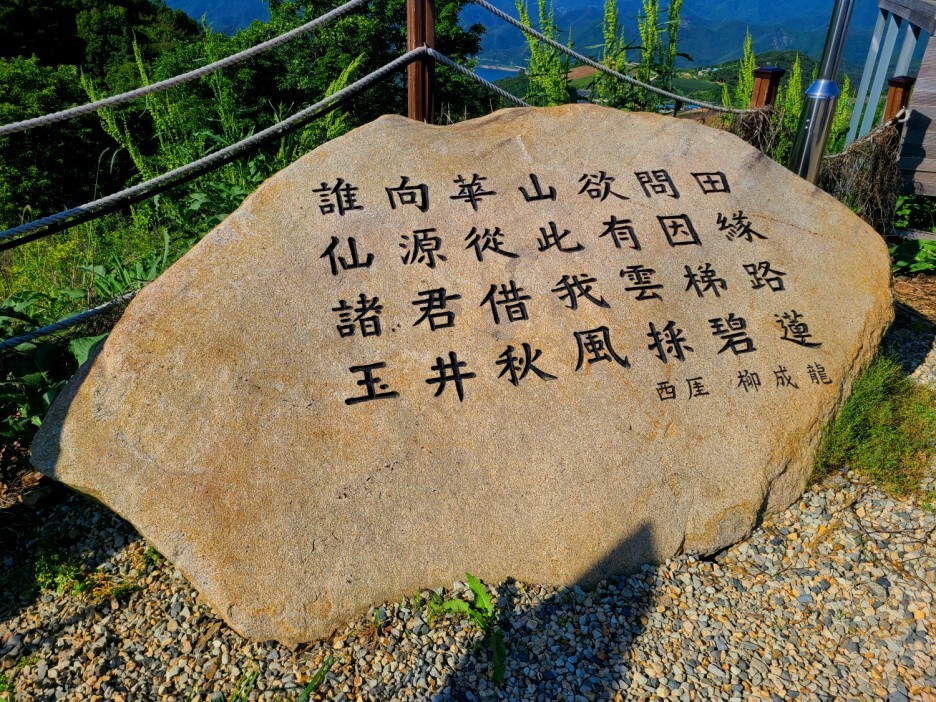 誰向華山欲問田
仙源從此有因緣
諸君借我雲梯路
玉井秋風採碧蓮
西厓 柳成龍